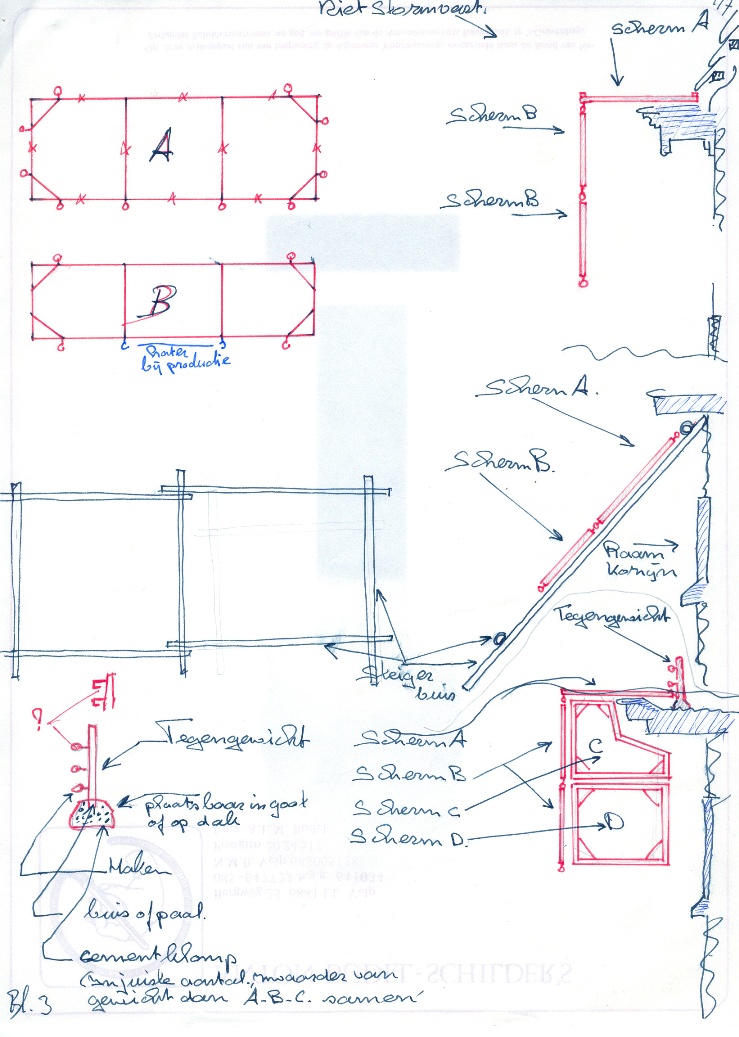 Niet Stormvast.
Scherm A
Scherm B
Scherm B
A
B
later
bij productie
Scherm A.
Scherm B.
Raam
Kozijn
Tegengewicht
Steiger
buis
?
Tegengewicht
plaatsbaar in goot
of op dak
Scherm A
Scherm B
Scherm C
Scherm D.
C
D
Maken
buis of paal.
cementklomp
(in juiste aantal, zwaarder van
gewicht dan A-B-C. samen
Bl. 3